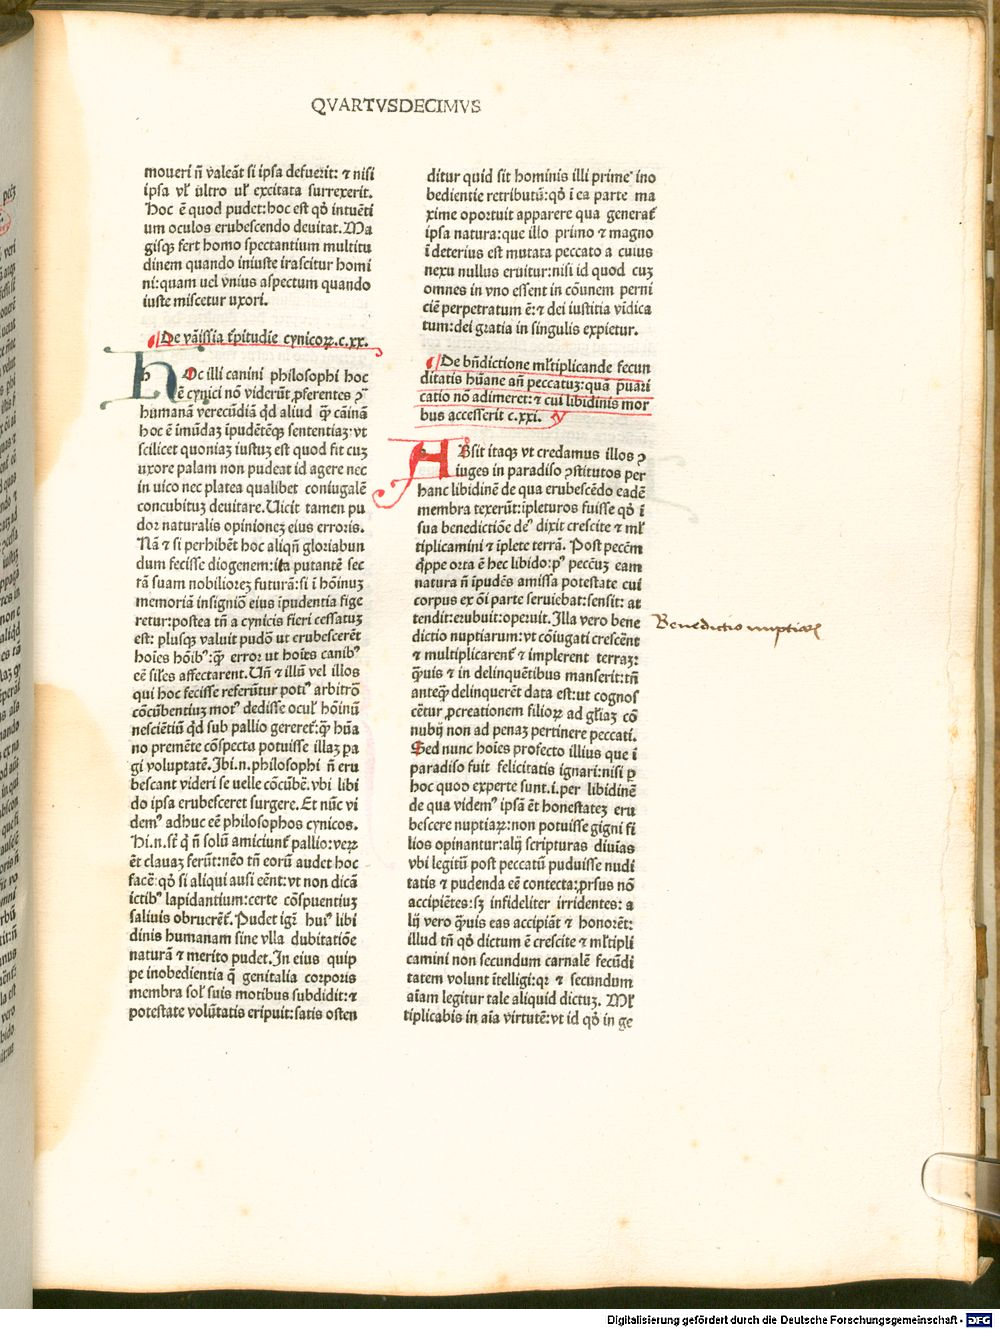 QVARTVSDECIMVS
moueri ñ valeãt si ipsa defuerit: ⁊ nisi
ipsa vl᷑ ultro ul᷑ excitata surrexerit.
Hoc ẽ quod pudet:hoc est qđ intuẽti
um oculos erubescendo deuitat. Ma
gisqꝫ fert homo spectantium multitu
dinem quando iniuste irascitur homi
ni:quam uel vnius aspectum quando
iuste miscetur uxori.
De vãissia ĩpitudĩe cynicoꝝ.c.xx.
hOc illi canini philosophi hoc
ẽ cynici nõ viderũt ꝓferentes ꝯ
humanã verecũdiã qđ aliud qꝫ cãinã
hoc ẽ ĩmũdaꝫ ĩpudẽtẽqꝫ sententiaꝫ:vt
scilicet quoniaꝫ iustuꝫ est quod fit cuꝫ
uxore palam non pudeat id agere nec
in uico nec platea qualibet coniugalẽ
concubituꝫ deuitare. Uicit tamen pu
dor naturalis opinioneꝫ eius erroris.
Nã ⁊ si perhibẽt hoc aliqñ gloriabun
dum fecisse diogenem:ita putantẽ sec
tã suam nobilioreꝫ futurã:si ĩ hõinuꝫ
memoriã insigniõ eius ĩpudentia fige
retur:postea tñ a cynicis fieri cessatuꝫ
est: plusqꝫ valuit pudõ ut erubescerẽt
hoĩes hõibꝰ:qꝫ error ut hoĩes canibꝰ
eẽ siĩles affectarent. Uñ ⁊ illũ vel illos
qui hoc fecisse referũtur potiꝰ arbitrõ
cõcũbentiuꝫ motꝰ dedisse ocul᷑ hõinũ
nescẽtiũ qđ sub pallio gereret᷑:qꝫ hũa
no premẽte cõspectu potuisse illaꝫ pa
gi voluptatẽ. Ibi.n.philosophi ñ eru
bescant videri se uelle cõcũbẽ.vbi libi
do ipsa erubesceret surgere. Et nũc vi
demꝰ adhuc eẽ philosophos cynicos.
Hi.n.st᷑ q ñ solũ amiciunt᷑ pallio:veꝝ
ẽt clauaꝫ ferũt:nẽo tñ eorũ audet hoc
facẽ:qđ si aliqui ausi eẽnt:vt non dicã
ictibꝰ lapidantium:certe cõspuentiuꝫ
saliuis obrucrẽt᷑. Pudet igr̃ huiꝰ libi
dinis humanam sine vlla dubitatiõe
naturã ⁊ merito pudet. In eius quip
pe inobedientia q̃ genitalia corporis
membra sol᷑ suis motibus subdidit:⁊
potestate volũtatis eripuit:satis osten
ditur quid sit hominis illi prime ino
bedientie retributũ:qđ ĩ ea parte ma
xime oportuit apparere qua generat᷑
ipsa natura:que illo primo ⁊ magno
ĩ deterius est mutata peccato a cuius
nexu nullus eruitur:nisi id quod cuꝫ
omnes in vno essent in cõunem perni
ciẽ perpetratum ẽ:⁊ dei iustitia vĩdica
tum:dei gratia in singulis expietur.
De bñdictione ml᷑tiplicande fecun
ditatis hũane añ peccatuꝫ:quã puari
catio nõ adimeret:⁊ cui libidinis mor
bus accesserit c.xxi.
ABsit itaqꝫ vt credamus illos ꝯ
iuges in paradiso ꝯstitutos per
hanc libidinẽ de qua erubescẽdo eadẽ
membra texerũt:ĩpleturos fuisse qđ ĩ
sua benedictiõe deꝰ dixit crescite ⁊ ml᷑
tiplicamini ⁊ ĩplete terrã. Post peccm̃
qꝑpe orta ẽ hec libido:pꝰ peccũꝫ eam
natura ñ ĩpudẽs amissa potestate cui
corpus ex õi parte seruiebat:sensit: at
tendit:erubuit:operuit. Illa vero bene
dictio nuptiarum:vt cõiugati crescẽnt
⁊ multiplicarent᷑ ⁊ implerent terraꝫ:
qꝫuis ⁊ in delinquẽtibus manserit:tñ
anteqꝫ delinquerẽt data est:ut cognos
cẽtur ꝓcreationem filioꝝ ad gl᷑iaꝫ cõ
nubij non ad penaꝫ pertinere peccati.
Sed nunc hoĩes profecto illius que ĩ
paradiso fuit felicitatis ignari:nisi ꝑ
hoc quod experte sunt.i.per libidinẽ
de qua videmꝰ ipsã ẽt honestateꝫ eru
bescere nuptiaꝝ:non potuisse gigni fi
lios opinantur:alij scripturas diuĩas
vbi legitũ post peccatũ puduisse nudi
tatis ⁊ pudenda eẽ contecta:ꝓrsus nõ
accipiẽtes:sꝫ infideliter irridentes: a
lij vero qꝫuis eas accipiãt ⁊ honorẽt:
illud tñ qđ dictum ẽ crescite ⁊ ml᷑tipli
camini non secundum carnalẽ fecũdi
tatem volunt ĩtelligi:qꝛ ⁊ secundum
aĩam legitur tale aliquid dictuꝫ. Ml᷑
tiplicabis in aĩa virtutẽ:vt id qđ in ge
Benedictio nuptiaꝝ
Digitalisierung gefördert durch die Deutsche Forschungsgemeinschaft - DFG